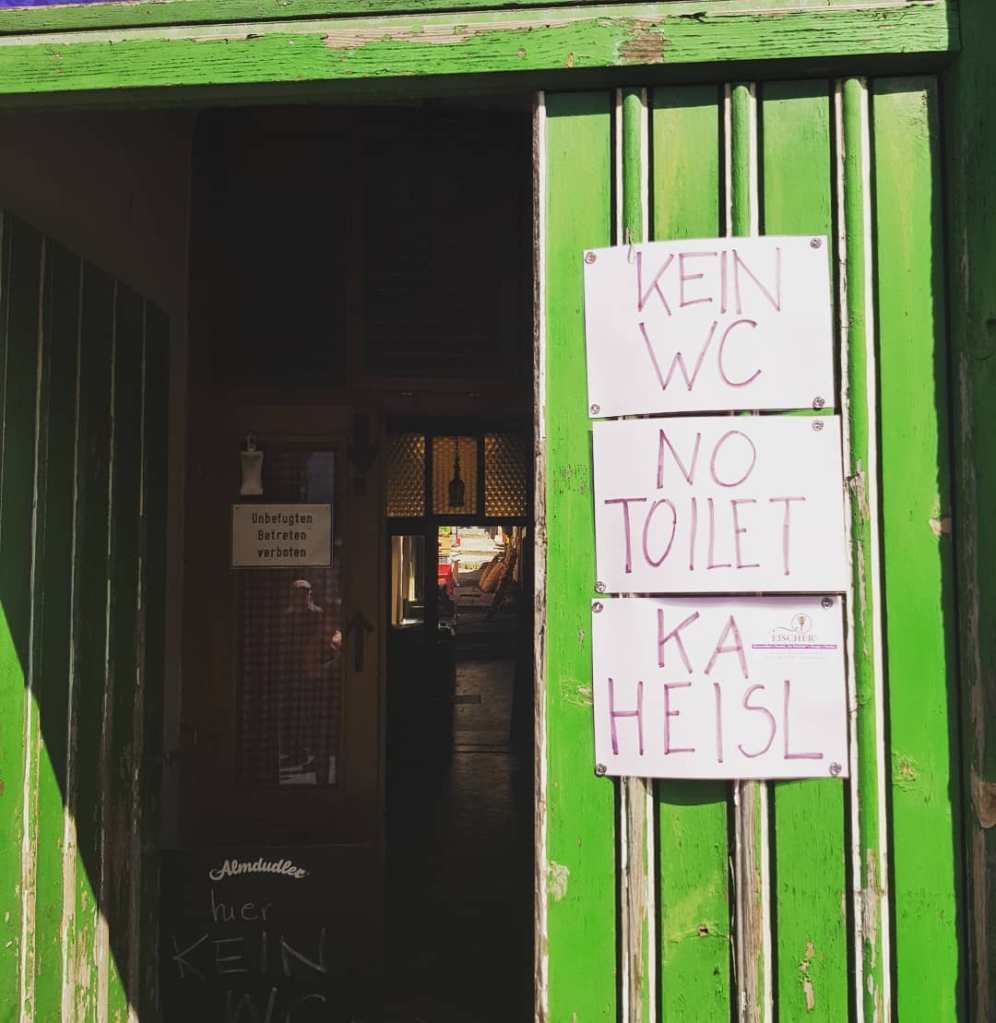 KEIN
WC
NO
TOILET
KA
FISCHER
HEISL
Unbefugten
Betreten
verboten
Almdudler
hier
KEIN
WC